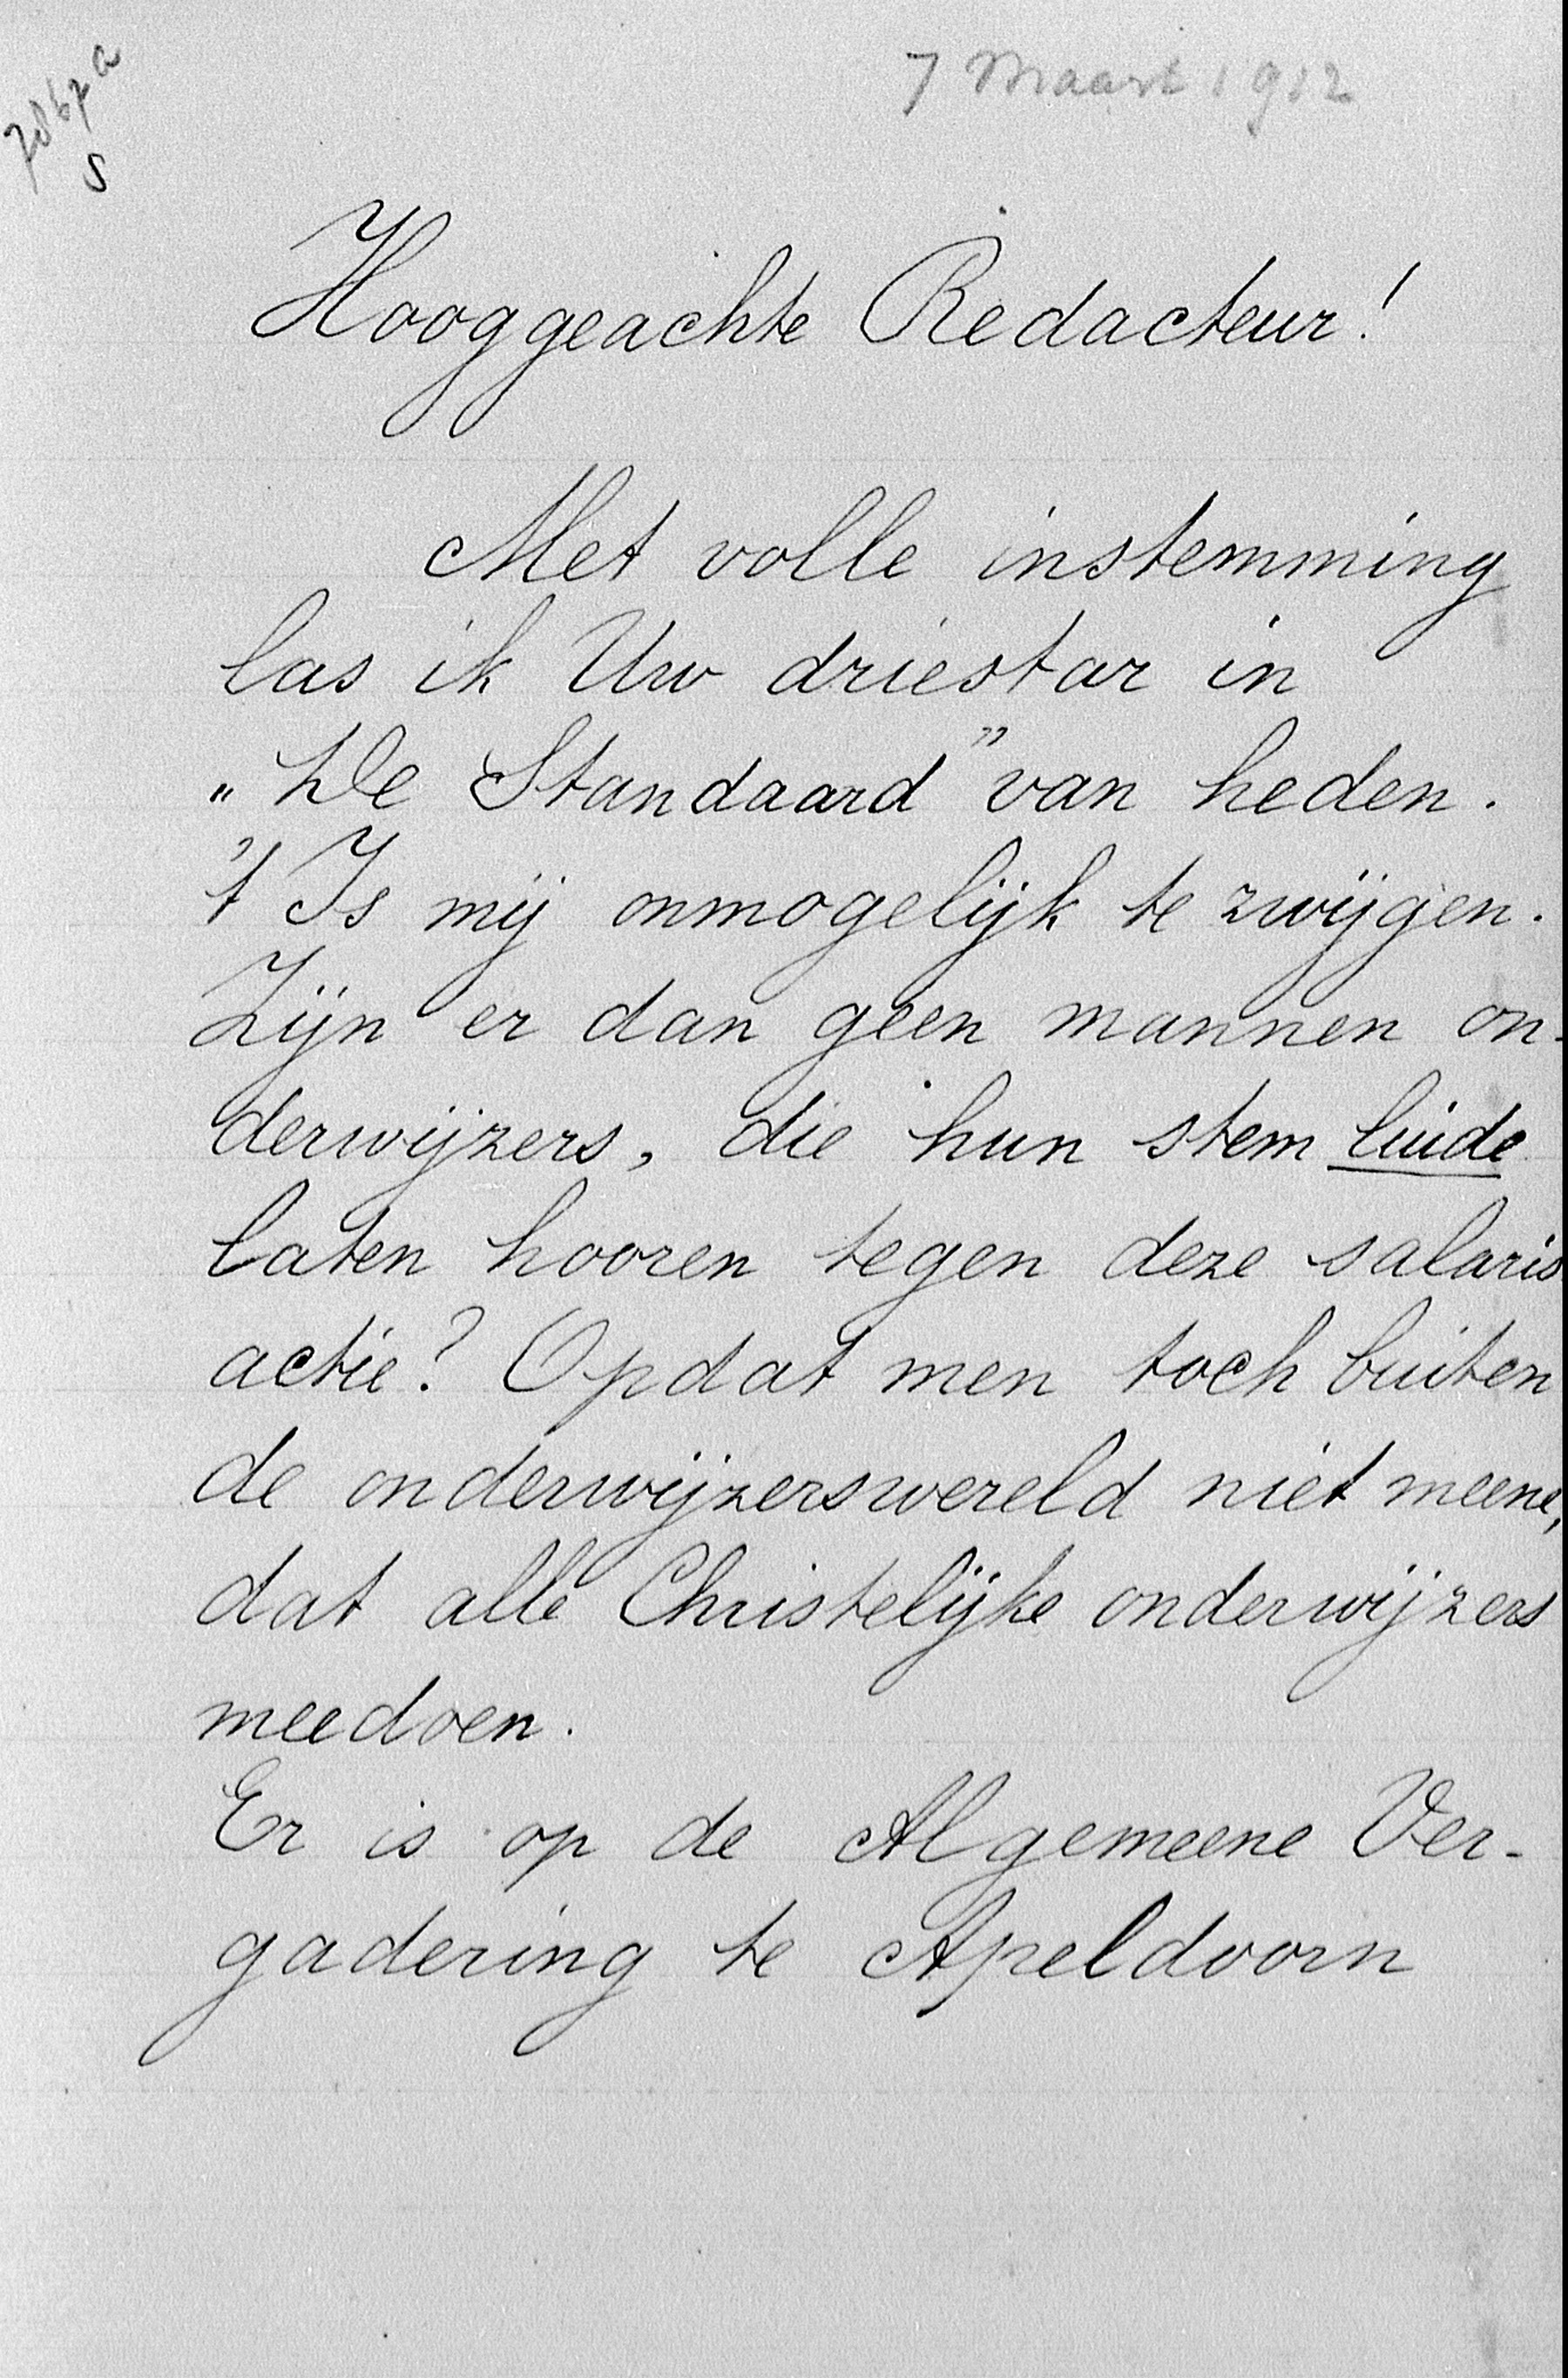 7 Maart 1912
Hooggeachte Redacteur!
Met volle instemming
las ik Uw driestar in
„De Standaard” van heden.
't Is mij onmogelijk te zwijgen.
Zijn er dan geen mannen on-
derwijzers, die hun stem luide
laten hooren tegen deze salaris
actie? Opdat men toch buiten
de onderwijzerswereld niet meene,
dat alle Christelijke onderwijzers
meedoen.
Er is op de Algemeene Ver-
gadering te Apeldoorn